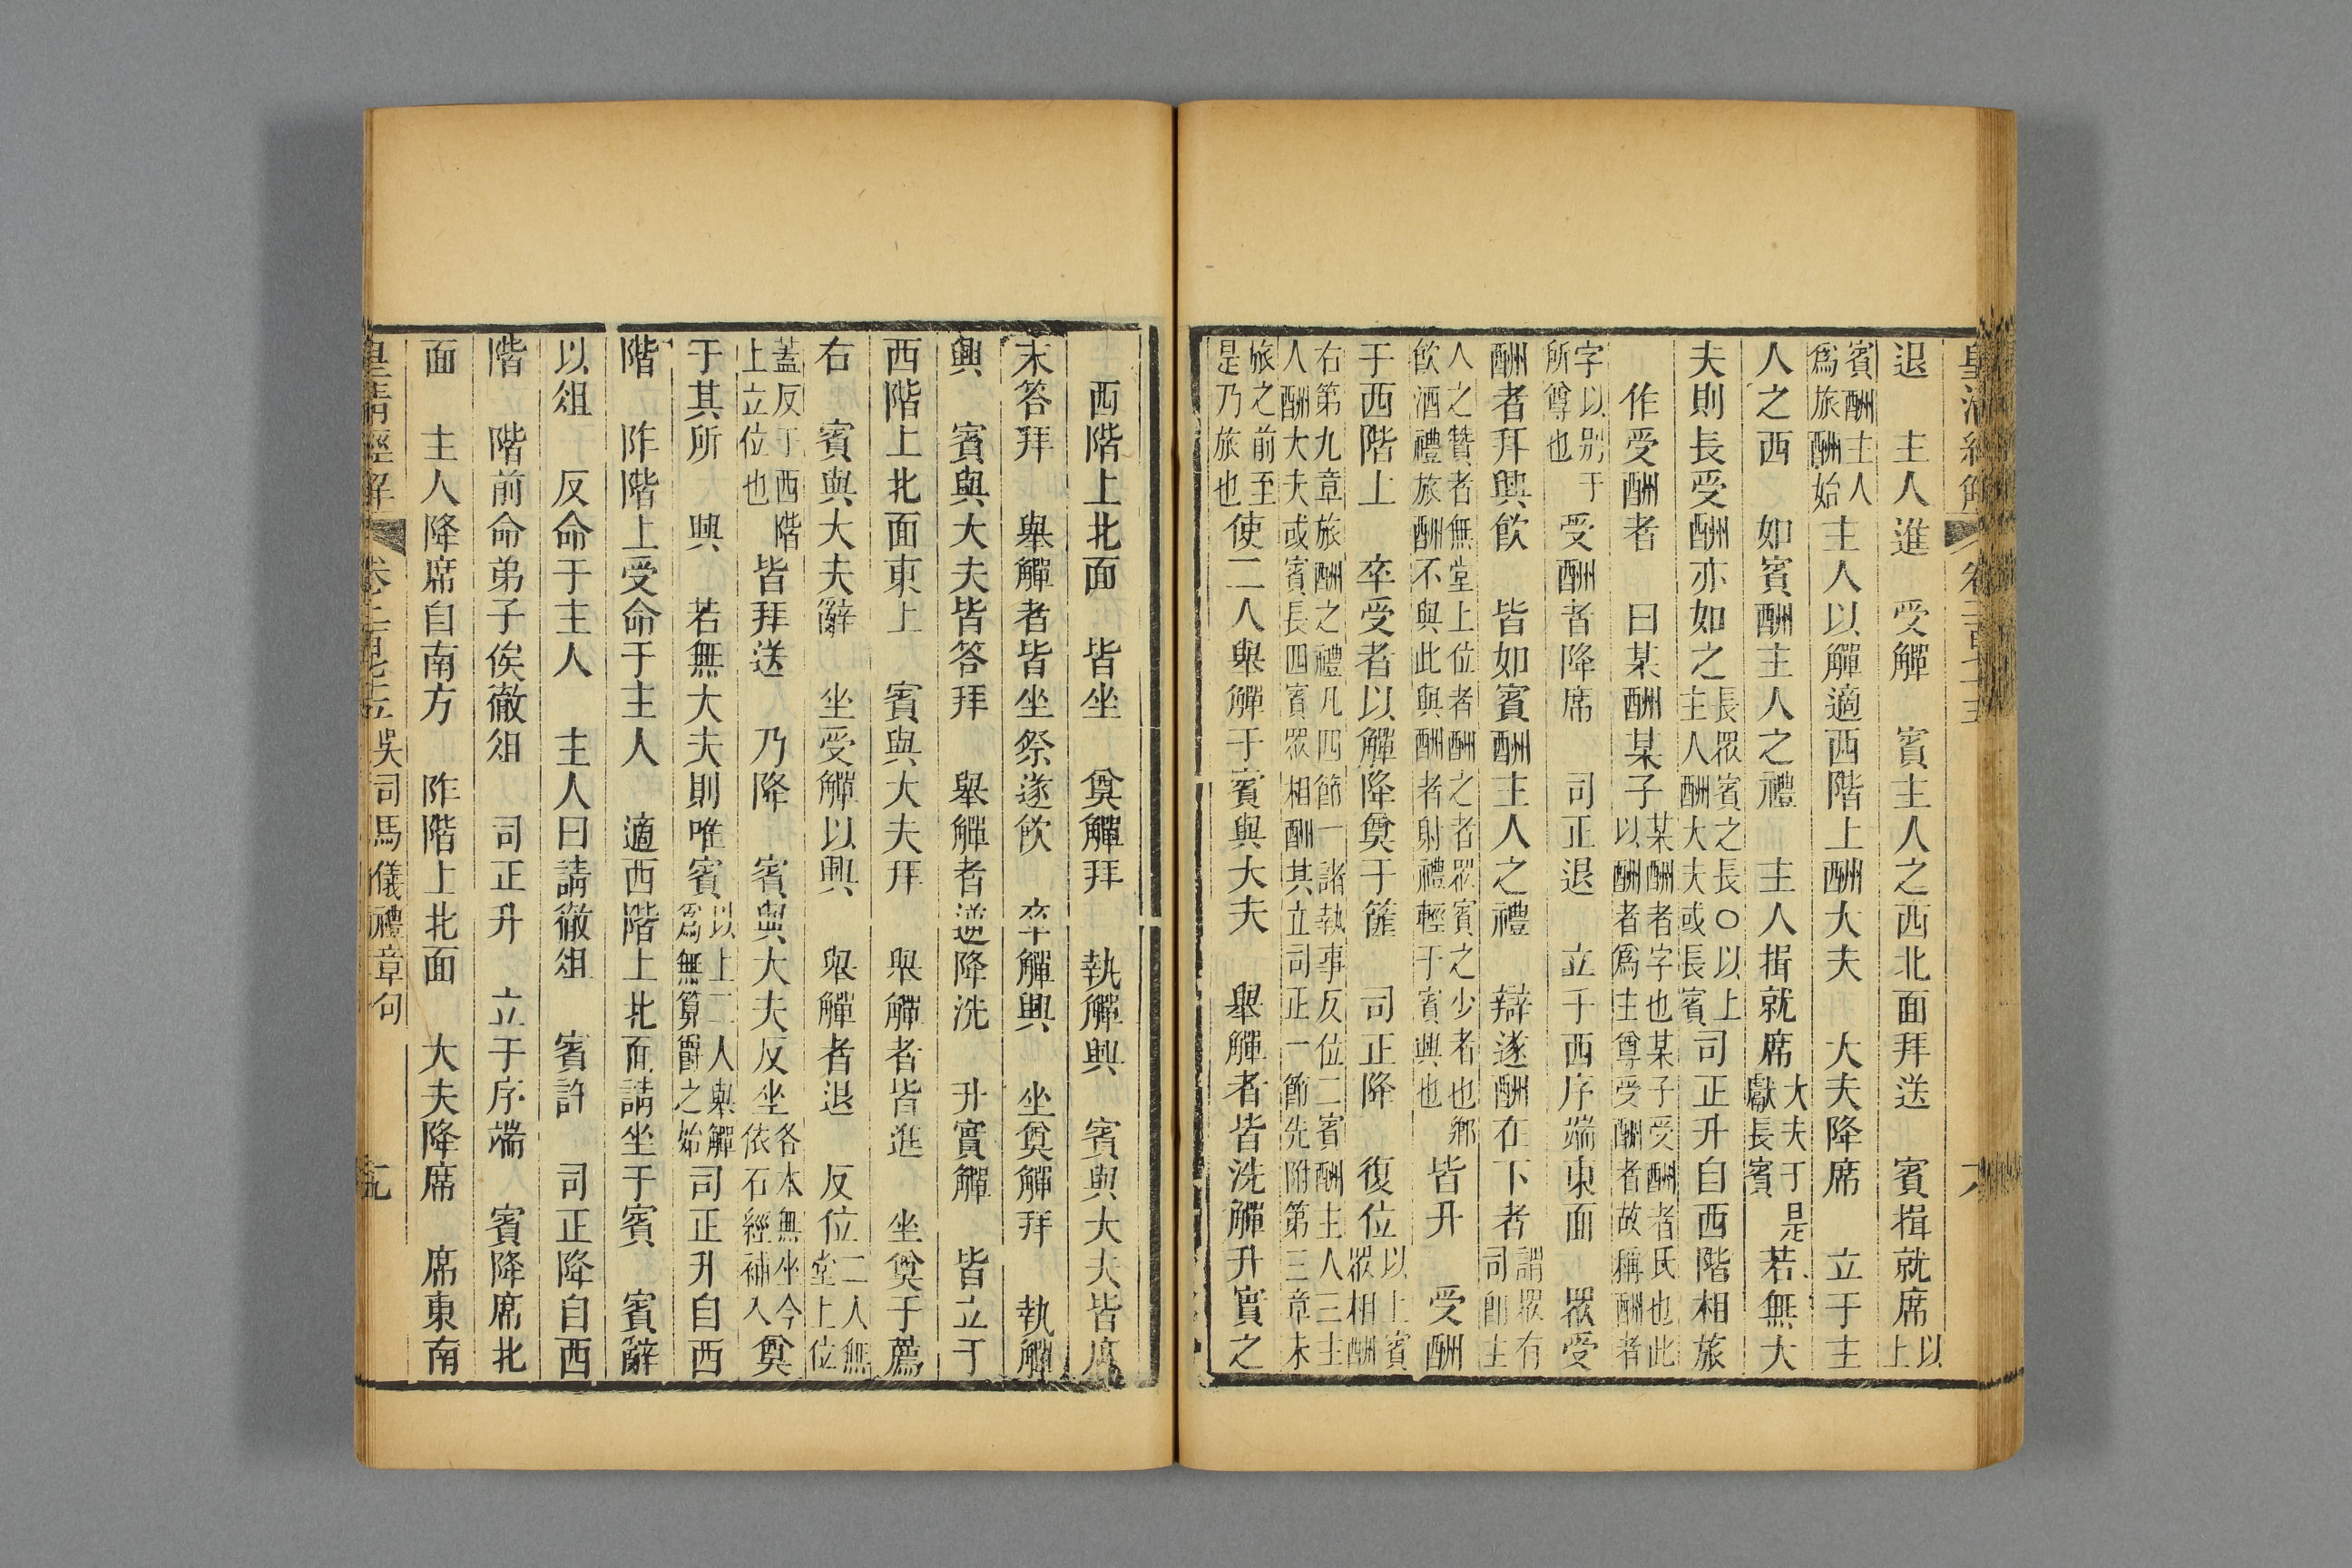 退　主人進　受觶　賓主人之西北面拜送　賓揖就席以上
賓酬主人爲旅酬始主人以觶適西階上酬大夫　大夫降席　立于主
人之西　如賓酬主人之禮　主人揖就席大夫于是獻長賓若無大
夫則長受酬亦如之長眾賓之長○以上主人酬大夫或長賓司正升自西階相旅
作受酬者　曰某酬某子某酬者字也某子受酬者氏也此以酬者爲主尊受酬者故稱酬者
字以別于所尊也受酬者降席　司正退　立于西序端東面　眾受
酬者拜興飮　皆如賓酬主人之禮　辯遂酬在下者謂眾有司卽主
人之贊者無堂上位者酬之者眾賓之少者也鄉飮酒禮旅酬不與此與酬者射禮輕于賓興也皆升　受酬
于西階上　卒受者以觶降奠于篚　司正降　復位以上賓眾相酬
右第九章旅酬之禮凡四節一諸執事反位二賓酬主人三主人酬大夫或賓長四賓眾相酬其立司正一節先附第三章末
旅之前至是乃旅也使二人舉觶于賓與大夫　舉觶者皆洗觶升實之
西階上北面　皆坐　奠觶拜　執觶興　賓與大夫皆席
末答拜　舉觶者皆坐祭遂飮　卒觶興　坐奠觶拜　執觶
興　賓與大夫皆答拜　舉觶者逆降洗　升實觶　皆立于
西階上北面東上　賓與大夫拜　舉觶者皆進　坐奠于薦
右　賓與大夫辭　坐受觶以興　舉觶者退　反位二人無堂上位
蓋反于西階上立位也皆拜送　乃降　賓與大夫反坐各本無坐今依石經補入奠
于其所　興　若無大夫則唯賓以上二人舉觶爲無算爵之始司正升自西
階　阼階上受命于主人　適西階上北面請坐于賓　賓辭
以俎　反命于主人　主人曰請徹俎　賓許　司正降自西
階　階前命弟子俟徹俎　司正升　立于序端　賓降席北
面　主人降席自南方　阼階上北面　大夫降席　席東南
皇清經解　卷二百七十五　吳司馬儀禮章句　九